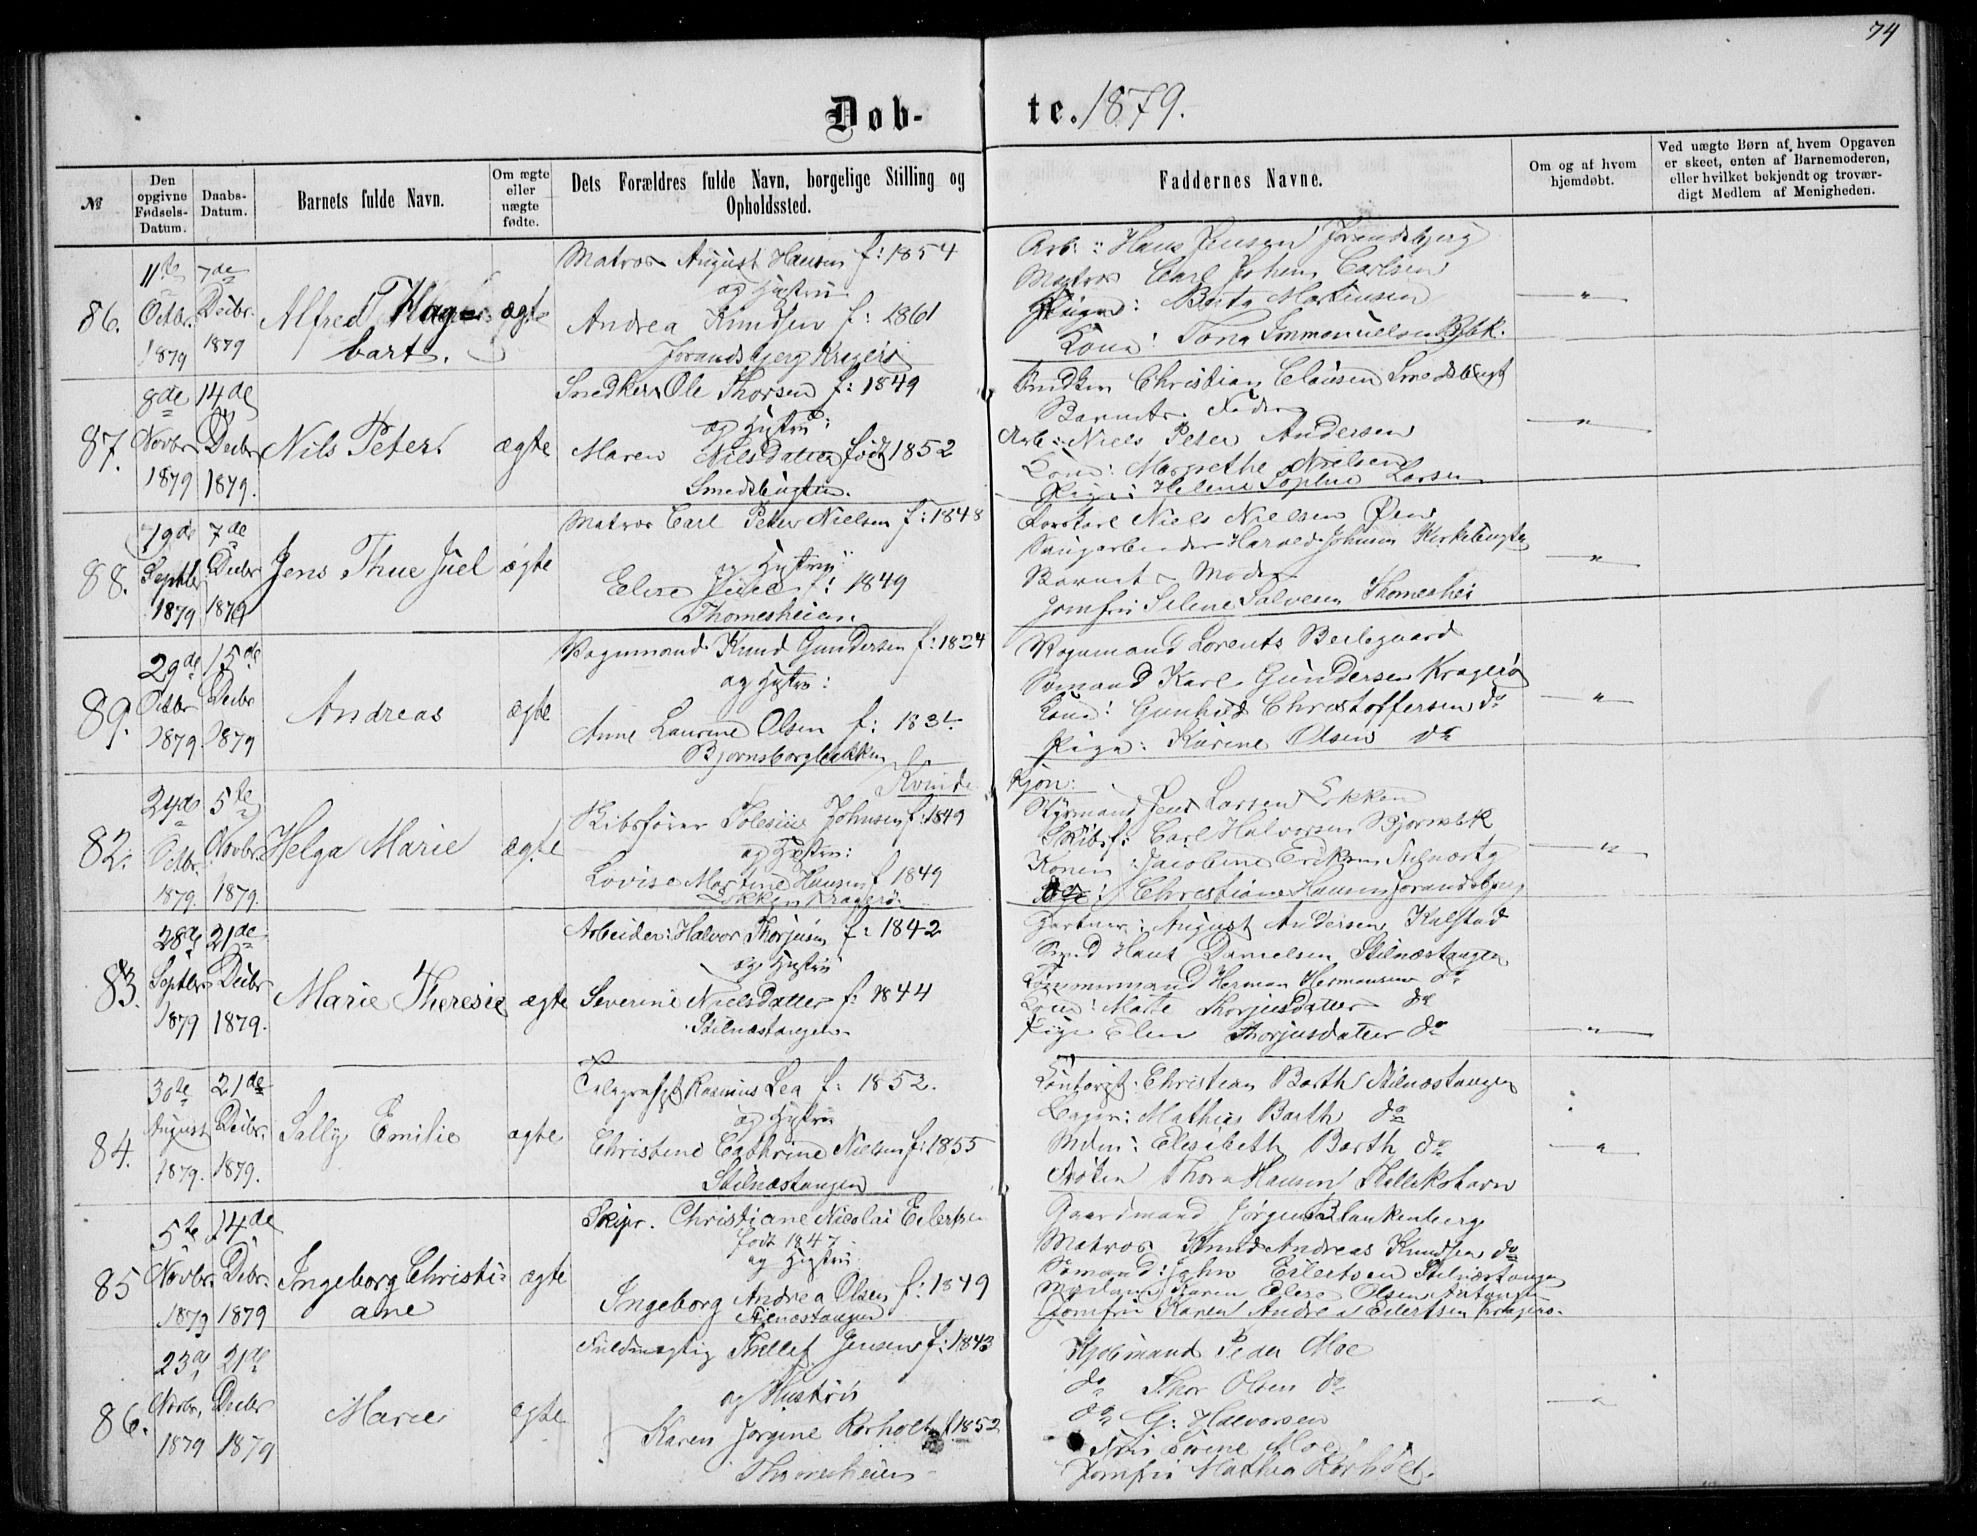 74
Døb- te. 1879.
№
Den opgivne Fødsels-Datum.
Daabs-Datum.
Barnets fulde Navn.
Om ægte eller uægte fødte.
Dets Forældres fulde Navn, borgelige Stilling og Opholdssted.
Faddernes Navne.
Om og af hvem hjemdøbt.
Ved uægte Børn af hvem Opgaven er skeet, enten af Barnemoderen, eller hvilket bekjendt og troværdigt Medlem af Menigheden.
86.
11te Octbr. 1879
7de Decbr. 1879
Alfred Hagbart.
ægte
Matros August Hansen f: 1854
og Hustru
Andrea Knudsen f: 1861
Jorandsbjerg Kragerø
Arb: Hans Jensen Jorandsbjerg
Matros Carl Johan Carlsen
Pigen: Berta Martinsen
Kone: Tona Immanuelsen
"
87.
8de Novbr. 1879
14de Decbr 1879.
Nils Peter
ægte
Snedker Ole Thorsen f: 1849
og Hustru:
Maren Nilsdatter født 1852
Smedsbugten.
Snedker Christian Clausen Smedsbugt
Barnets Fader
Arb: Niels Peter Andersen
Kone: Margrethe Nielsen
Pige: Helene Sophie Larsen
"
88.
19de Septbr 1879
7de Decbr 1879
Jens Thue Juel
ægte
Matros Carl Peter Nielsen f: 1848
og Hustru
Elise f: 1849
Thomesheien.
Niels Nielsen Øen
Saugarbeider Harald Johnsen Kirkebugten
Barnets Moder
Jomfru Seline Salvesen Thomeshei
"
89.
29de Octbr 1879
15de Decbr 1879
Andreas
ægte
Vognmand Knud Gundersen f: 1824
og Hustru:
Anne Laurine Olsen f:
Bjornsborgbakken
Vognmand Lorents Beilegaard
Sømand Karl Gundersen Kragerø
Kone: Gunhild Christoffersen do
Pige: Karine Olsen do
"
Kvinde Kjøn:
82.
24de Octbr. 1879.
5te Novbr. 1879.
Helga Marie
ægte
Skibsfører Tolesius Johnsen f: 1849
og Hustru:
Lovise Martine Hansen f 1849
Løkken Kragerø.
Styrmand Jens Larsen Løkken
Skibsf: Carl Halvorsen Bjornsbk
Konen Jacobine Eriksen Stilnæstg
do: Christiane Hansen Jorandsbjerg
"
83.
28de Septbr 1879
21de Decbr 1879.
Marie Theresie
ægte
Arbeider: Halvor Thorjusen f: 1842
og Hustru
Severine Nielsdatter f: 1844
Stilnæstangen
Gartner: August Andersen Kalstad
Smed Hans Danielsen Stilnæstangen
Tømmermand Herman Hermansen do
Kone: Marte Thorjusdatter do
Pige Elen Thorjusdatter do
"
84.
30te August 1879.
21de Decbr. 1879.
Sally Emilie
ægte
Telegrafist Rasmus Lea f: 1852.
og Hustru
Christine Cathrine Nielsen f: 1855
Stilnæstangen
Kontorist: Christian Barth Stilnæstangen
Mathias Barth do
Mdm: Elisabeth Barth do
Frøken Thora Hansen Skillikshavn
"
85
5te Novbr. 1879
14de Decbr. 1879
Ingeborg Christiane
ægte
Skipr. Christiane Nicolai Eilertsen
født 1847
og Hustru
Ingeborg Andrea Olsen f: 1849
Stilnæstangen
Gaardmand Jørgen Blankenberg
Matros Knud Andreas Knudsen do
Sømand: John Eilertsen Stilnæstangen
Madam Karen Elise Olsen
Jomfru Karen Andrea Eilertsen Kragerø.
86.
23de Novbr. 1879
21de Decbr 1879
Marie
ægte
Fuldmægtig Thellef Jensen f: 1843
og Hustru
Karen Jorgine Rorholt f 1852
Thomesheien
Kjøbmand Peder Moe
do Thor Olsen do
do G: Halvorsen
Fru Lovine Moe
Jomfru Mathea Rorholt.
"